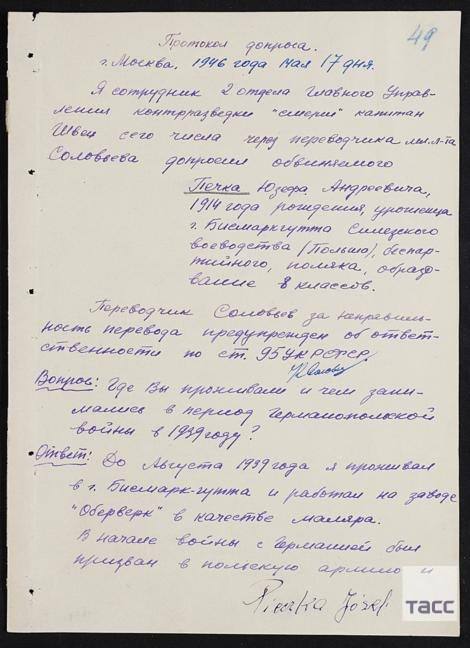 49
Протокол допроса.
г. Москва, 1946 года мая 17 дня.
Я сотрудник 2 отдела Главного Управ-
ления контрразведки "смерш" капитан
Швец сего числа через переводчика мл. л-та
Соловьева допросил обвиняемого
Печка Юзефа Андреевича,
1914 года рождения, уроженца
г. Бисмаркгутта Силезского
воеводства (Польша), беспар-
тийного, поляка, образо-
вание 8 классов.
Переводчик Соловьев за неправиль-
ность перевода предупрежден об ответ-
ственности по ст. 95 УК РСФСР.
Вопрос: Где Вы проживали и чем зани-
мались в период Германопольской
войны в 1939 году?
Ответ: До Августа 1939 года я проживал
в г. Бисмарк-гутта и работал на заводе
"Оберверк" в качестве маляра.
В начале войны с Германией был
призван в польскую армию и
Pieczka Józef
ТАСС